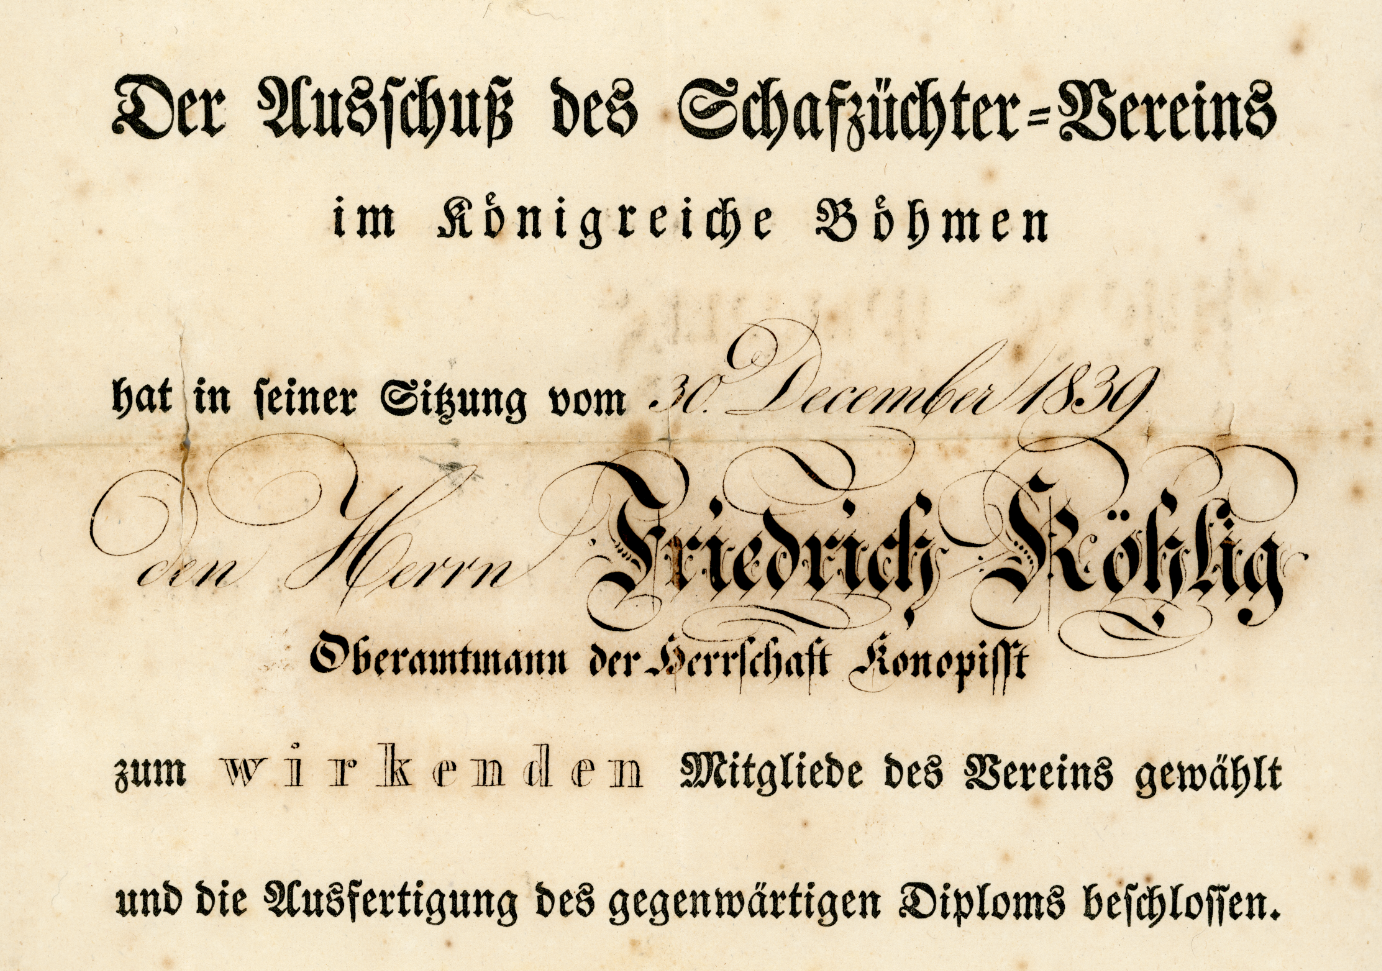 Der Ausschuß des Schafzüchter=Vereins
im Königreiche Böhmen
hat in seiner Sitzung vom 30. December 1839
den Herrn Friedrich Köhlig
Oberamtmann der Herrschaft Konopisst
zum wirkenden Mitgliede des Vereins gewählt
und die Ausfertigung des gegenwärtigen Diploms beschlossen.